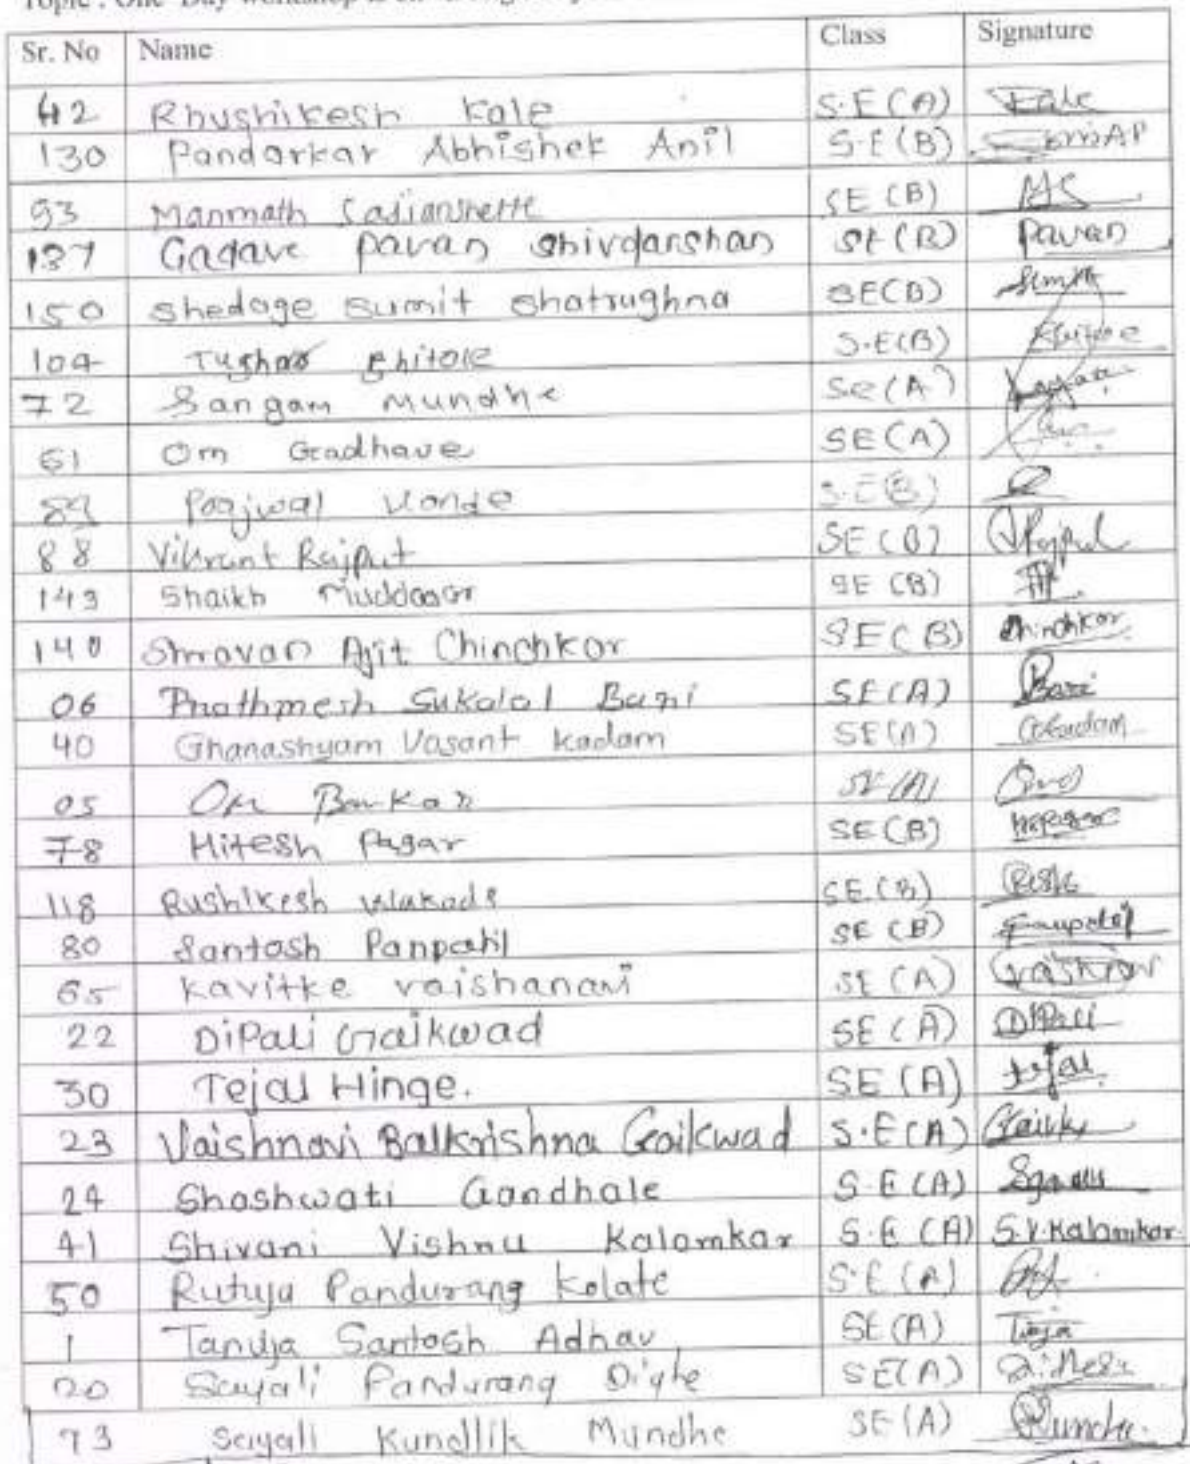 Topic : One Day Workshop
Sr. No Name Class Signature
42 Rhushikesh Kale S.E (A) Kale
130 Pandarkar Abhishek Anil S.E (B)
93 Manmath SE (B)
137 Gadave pavan shivdarshan SE (B) Pavan
150 shedage sumit shatrughna SE(B) Sumit
104 Tushar Bhitole S.E(B)
72 Sangam Mundhe SE (A)
61 Om Gadhave SE (A)
89 Prajwal Konde S.E(B)
88 Vikrant Rajput SE (B) Rajput
143 Shaikh Muddassar SE (B)
140 Shravan Ajit Chinchkar SE (B) Chinchkar
06 Prathmesh Sukalal Bari SE(A) Bari
40 Ghanashyam Vasant Kadam SE(A) Kadam
05 Om Bankar SE (A)
78 Hitesh Pagar SE(B) Pagar
118 Rushikesh Walke SE (B)
80 Santosh Panpatil SE (B) Panpatil
65 Kavitke vaishanavi SE (A) Vaishnavi
22 DiPali Gaikwad SE (A) DiPali
30 Tejal Hinge. SE (A) tejal
23 Vaishnavi Balkrishna Gaikwad S.E (A)
24 Shashwati Gandhale S.E (A)
41 Shivani Vishnu Kalamkar S.E (A) S.V.Kalamkar
50 Rutuja Pandurang Kolate S.E (A)
1 Tanuja Santosh Adhav SE (A) Tanuja
20 Sayali Pandurang Dighe SE(A)
73 Sayali Kundlik Mundhe SE (A) Mundhe